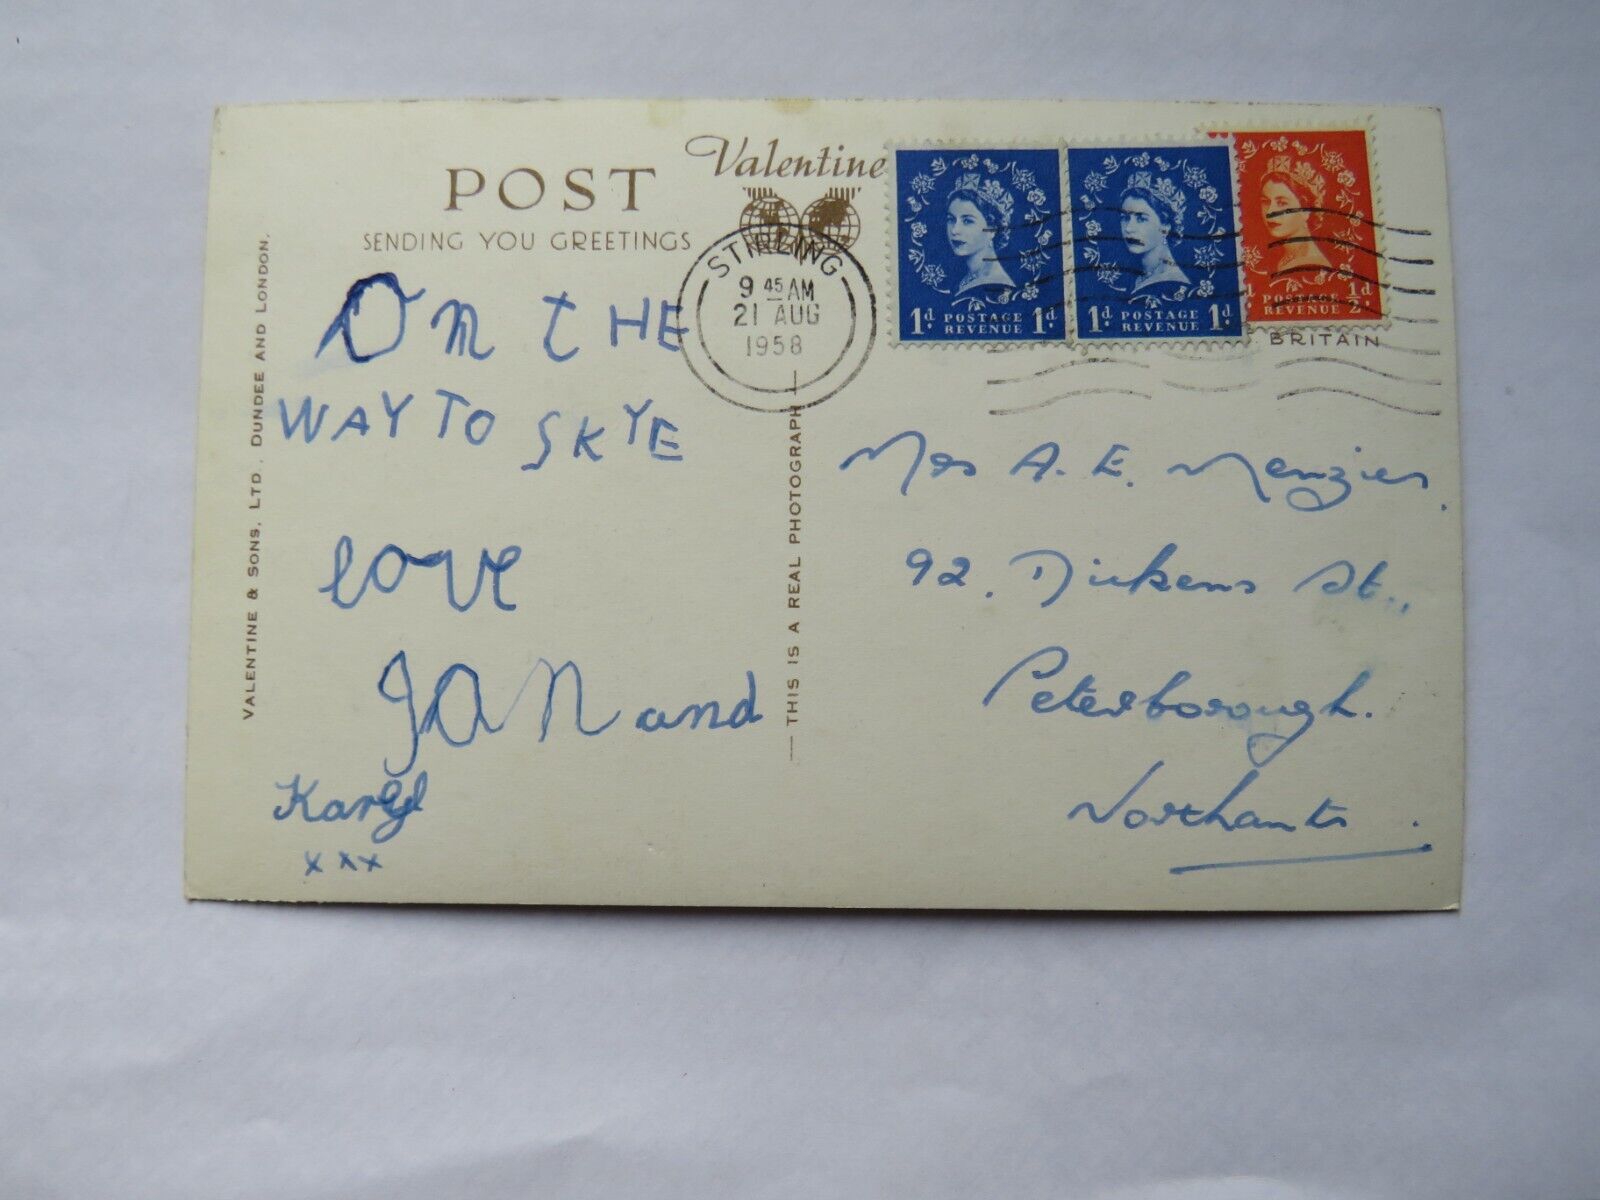 Valentine
POST
SENDING YOU GREETINGS
VALENTINE & SONS. LTD. DUNDEE AND LONDON.
STIRLING
9 45 AM
21 AUG
1958
1d. POSTAGE REVENUE 1d.
1d. POSTAGE REVENUE 1d.
1/2 d
REVENUE
BRITAIN
On tHE
WAY TO SKYE
love
JAN and
x x x
THIS IS A REAL PHOTOGRAPH
Mrs A. E. Menzies.
92, Dickens St.,
Peterborough.
Northants.